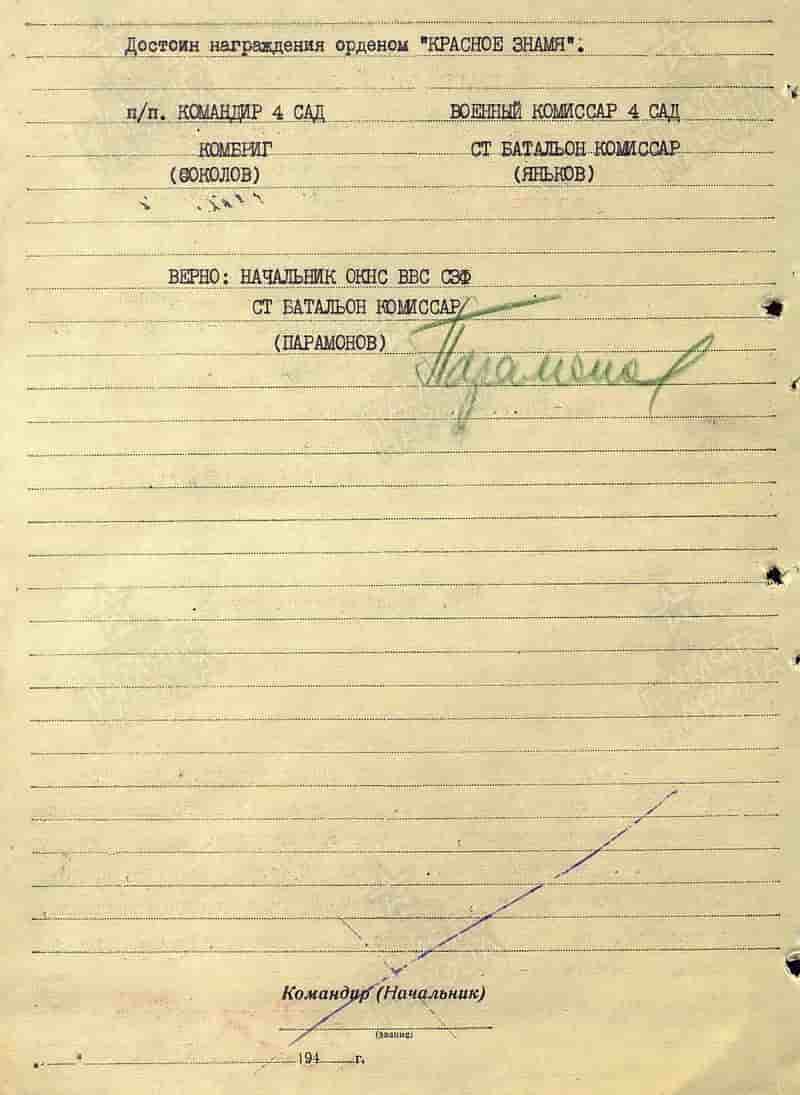 Достоин награждения орденом "КРАСНОЕ ЗНАМЯ".
п/п. КОМАНДИР 4 САД ВОЕННЫЙ КОМИССАР 4 САД
КОМБРИГ СТ БАТАЛЬОН КОМИССАР
(СОКОЛОВ) (ЯНЬКОВ)
ВЕРНО: НАЧАЛЬНИК ОКНС ВВС СЗФ
СТ БАТАЛЬОН КОМИССАР
(ПАРАМОНОВ)
Командир (Начальник)
(звание)
" " 194 г.